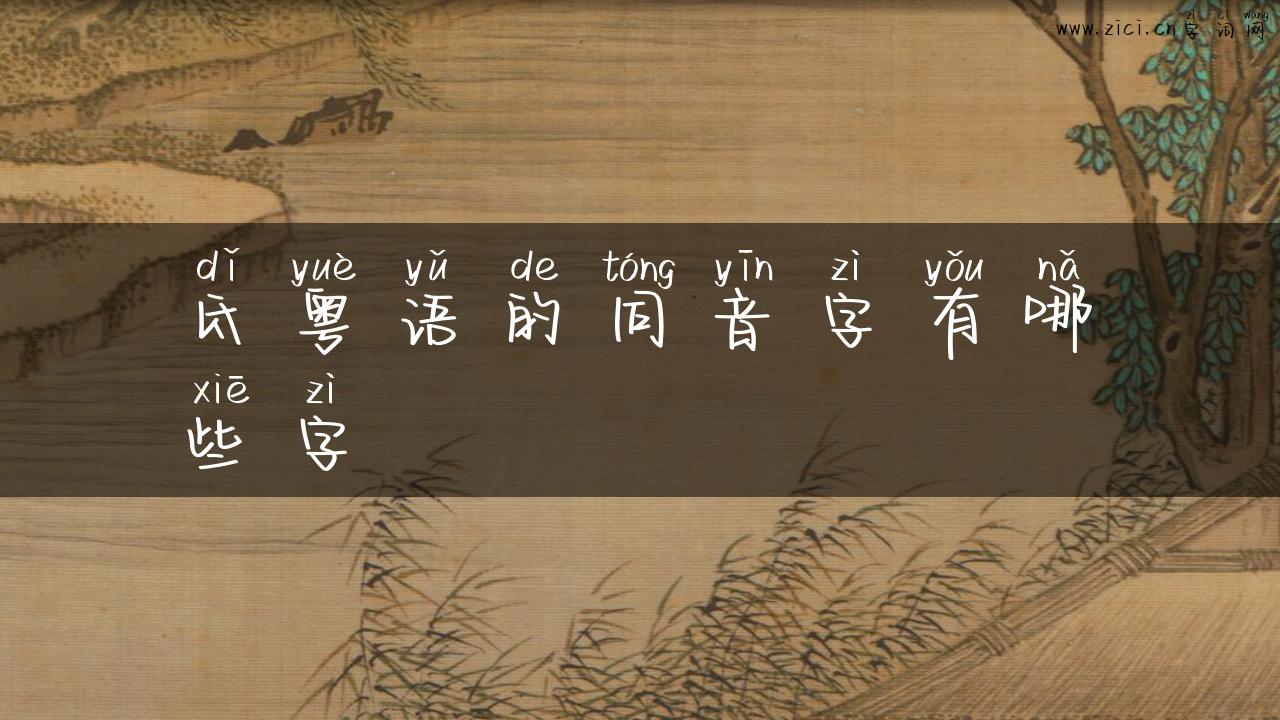 zì cí wǎng
www.zici.cn 字 词 网
dǐ yuè yǔ de tóng yīn zì yǒu nǎ
氐 粤 语 的 同 音 字 有 哪
xiē zì
些 字